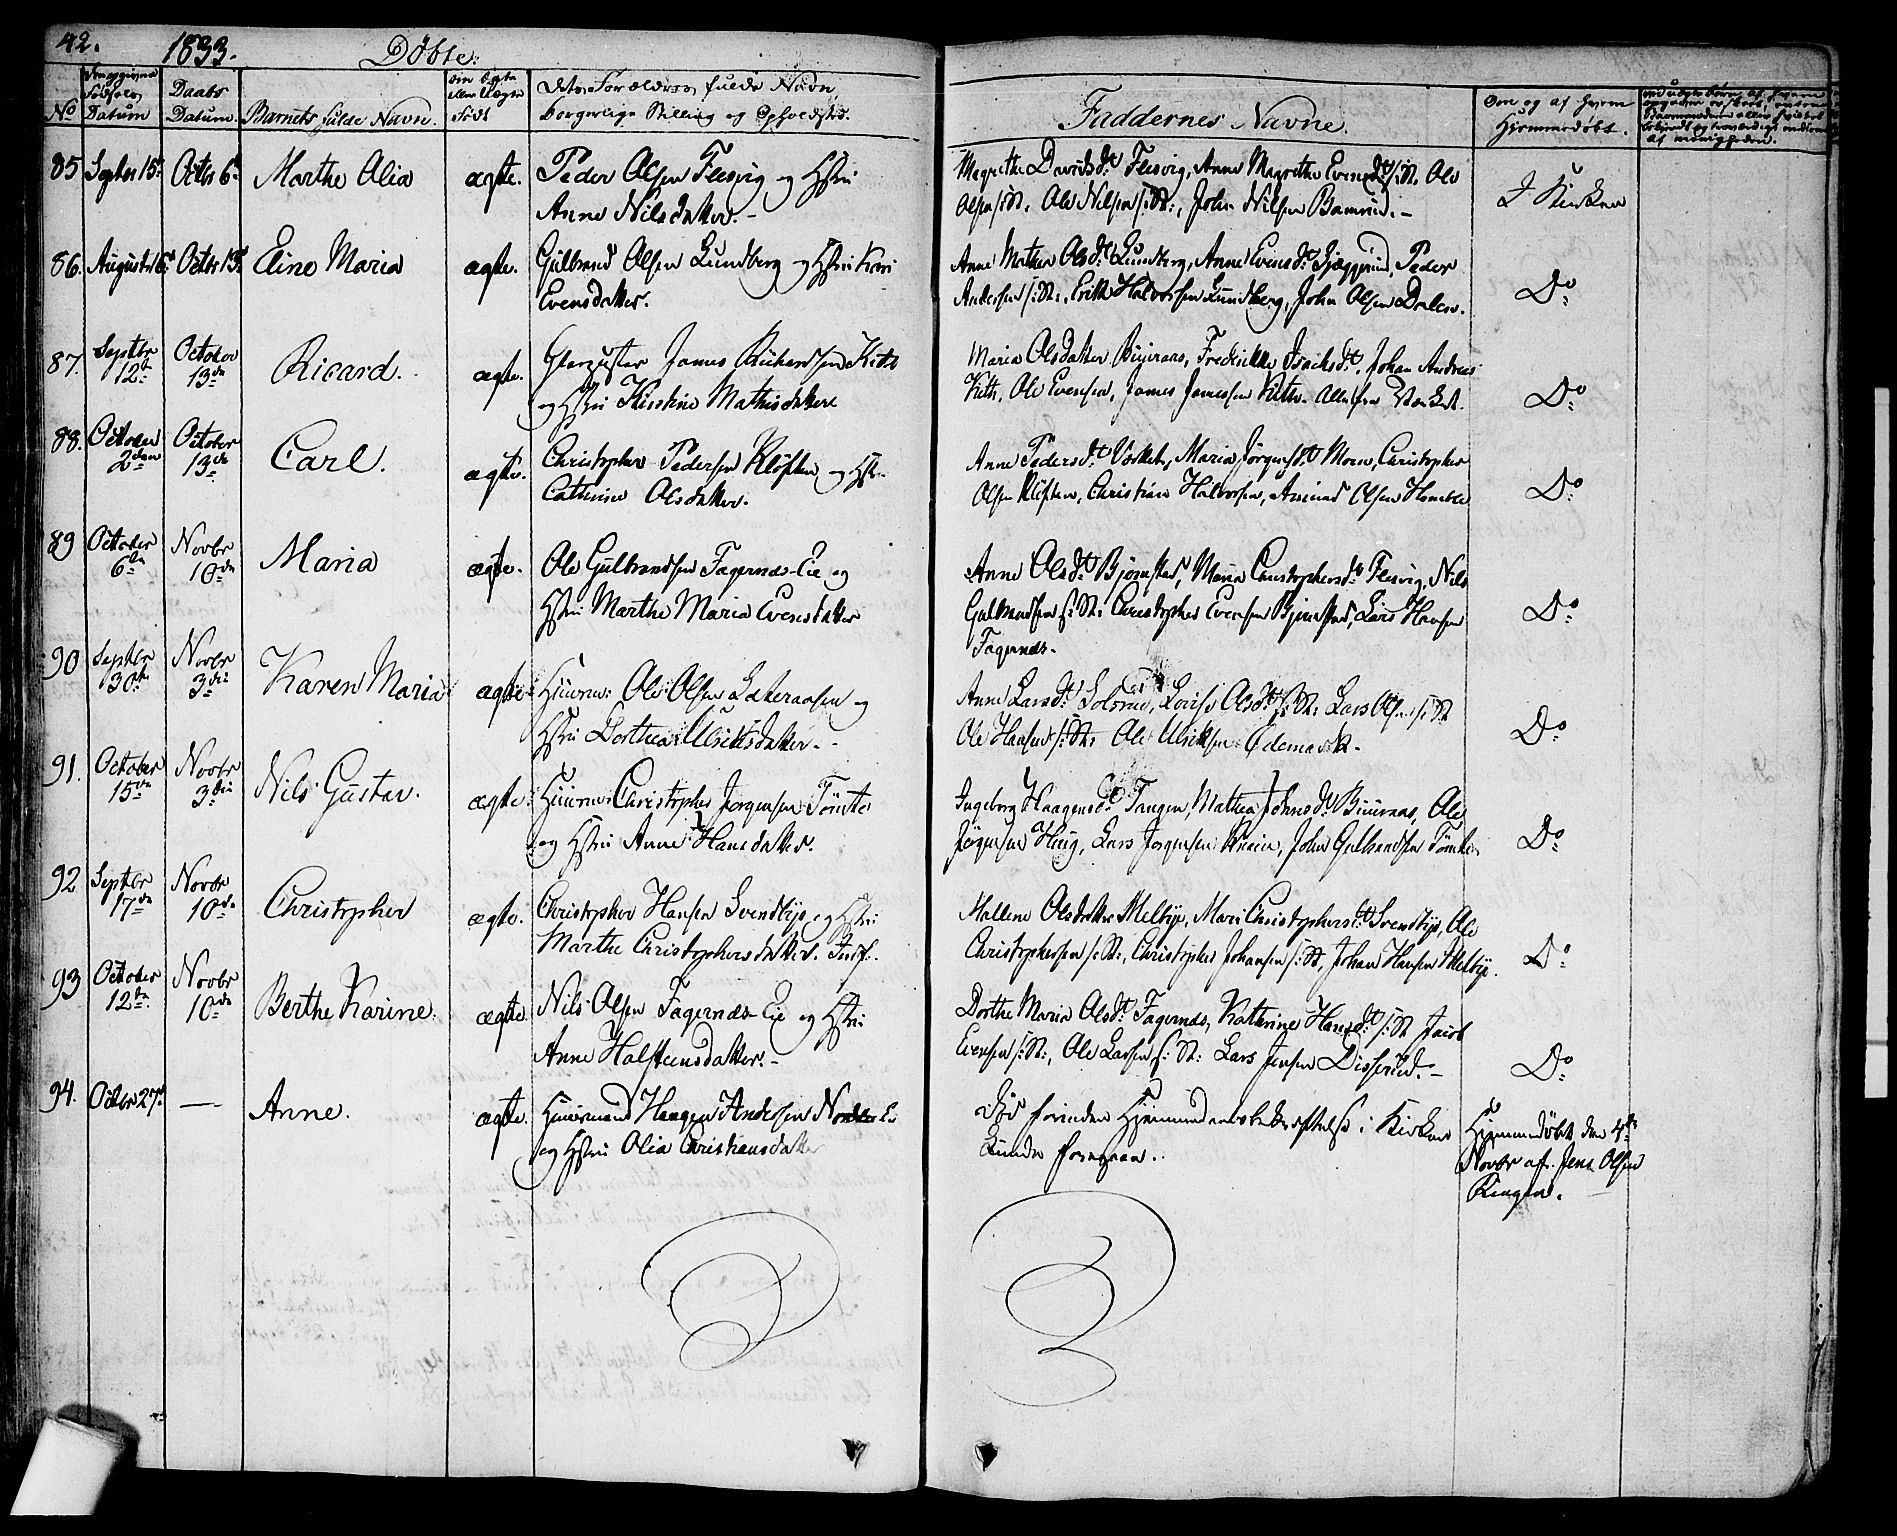 42. 1833. Döbte.
No
Fødsels Datum
Daabs Datum.
Barnets fulde Navn.
Født
Forældres fulde Navn,
borgerlige Stilling og Opholdsted.
Faddernes Navne.
Om og af hvem
Hjemmedøbt.
85 Septbr 15de Octbr 6te Marthe Olia ægte. Peder Olsen Flesvig og Hstru
Anne Nilsdatter.-
Magrethe Davidsdt Flesvig, Anne Magrethe Evensdt s: St. Ole
Olsen s: St. Ole Nilsen s: St:, John Nilsen Bamrud.-
I Kirken
86. August 16de Octbr 13de Eline Maria ægte. Gulbrand Olsen Lundberg og Hstru Kari
Evensdatter.
Anne Mathea Olsdt Lundberg, Anne Evensdt, Peder
Andersen s: St:, Erik Halvorsen Lundberg, John Olsen Dalen.
Do
87. Septbr 12te October 13de Ricard. ægte. James Richardsen Keth
og Hstru Kirstine Mathisdatter
Maria Olsdatter, Fredrikke Isachsdt, Johan Andreas
Keth, Ole Evensen, James Jamessen Keth. Alle fra Værket.
Do
88. October 2den October 13de Carl. ægte. Christopher Pedersen Kløften og Hstr.
Cathrine Olsdatter.
Anne Pedersdt Værket, Maria Jörgensdt Moen, Christopher
Olsen Kløften, Christian Halvorsen, Amund Olsen
Do
89 October 6te Novbr 10de Maria ægte. Ole Gulbrandsen Fagernæs-Eie og
Hstru Marthe Maria Evensdatter
Anne Olsdt Bjørnstad, Maria Christophersdt Flesvig, Nils
Gulbrandsen s: St: Christopher Evensen Bjørnstad, Lars Hansen
Fagernæs.
Do
90 Septbr 30te Novbr 3die Karen Maria ægte Huusm: Ole Olsen og
Hstru Dorthea Ulriksdatter.-
Anne Larsdt Solsrud, Lovise Olsdt s: St: Lars Olsen s: St
Ole Hansen s: St: Ole Ulriksen Ødemark.
Do
91. October 15de Novbr 3die Nils Gustav. ægte. Huusm: Christopher Jørgensen Tömte
og Hstru Anne Hansdatter.
Ingeborg Haagensdt Tangen, Mathea Johnsdt, Ole
Jörgensen Haug, Lars Jørgensen, John Gulbrandsen Tömte
Do
92 Septbr 17de Novbr 10de Christopher ægte. Christopher Hansen Svendbye og Hstru
Marthe Christophersdatter.
Mallene Olsdatter Melbye, Mari Christophersdt Svendbye, Ole
Christophersen s: St:, Christopher Johansen s: St, Johan Hansen Melbye.
Do
93 October 12te Novbr 10de Berthe Karine. ægte. Nils Olsen Fagernæs Eie og Hstru
Anne Halsteensdatter.-
Dorthe Maria Olsdt Fagernæs, Kathrine Hansdt s: St Jacob
Evensen s: St:, Ole Larsen s: St: Lars Jensen Disserud.-
Do
94. Octbr 27de — Anne. ægte. Huusmand Haagen Andersen Eie
og Hstru Olia Christiansdatter
Død forinden Hjemmedaabsbekræftelse i Kirken
kunde foregaae.
Hjemmedöbt den 4de
Novbr af Jens Olsen
Ringen.